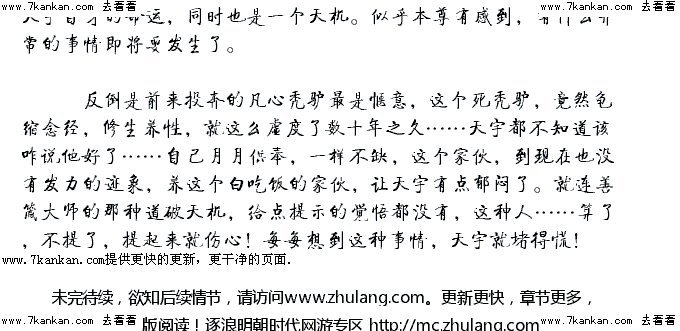 www.7kankan.com 去看看 www.7kankan.com 去看看 www.7kankan.com 去看看
，同时也是一个天机。似乎本尊有感到，
常的事情即将要发生了。
反倒是前来投奔的凡心秃驴最是惬意，这个死秃驴，竟然龟
缩念经，修生养性，就这么虚度了数十年之久……天宇都不知道该
咋说他好了……自己月月供奉，一样不缺，这个家伙，到现在也没
有发力的迹象，养这个白吃饭的家伙，让天宇有点郁闷了。就连善
箴大师的那种道破天机，给点提示的觉悟都没有，这种人……算了
，不提了，提起来就伤心！每每想到这种事情，天宇就堵得慌！
www.7kankan.com提供更快的更新，更干净的页面.
未完待续，欲知后续情节，请访问www.zhulang.com。更新更快，章节更多，
版阅读！逐浪明朝时代网游专区 http://mc.zhulang.com
www.7kankan.com 去看看 www.7kankan.com 去看看